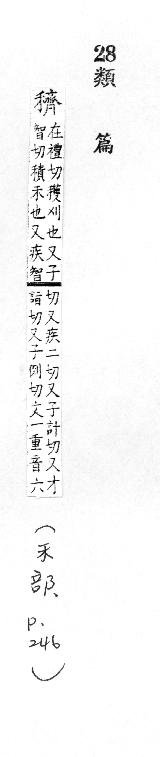 28類篇
穧
在禮切穫刈也又子
智切積禾也又疾智
切又疾二切又子計切又才
詣切又子例切文一重音六
(禾部
p.
246)